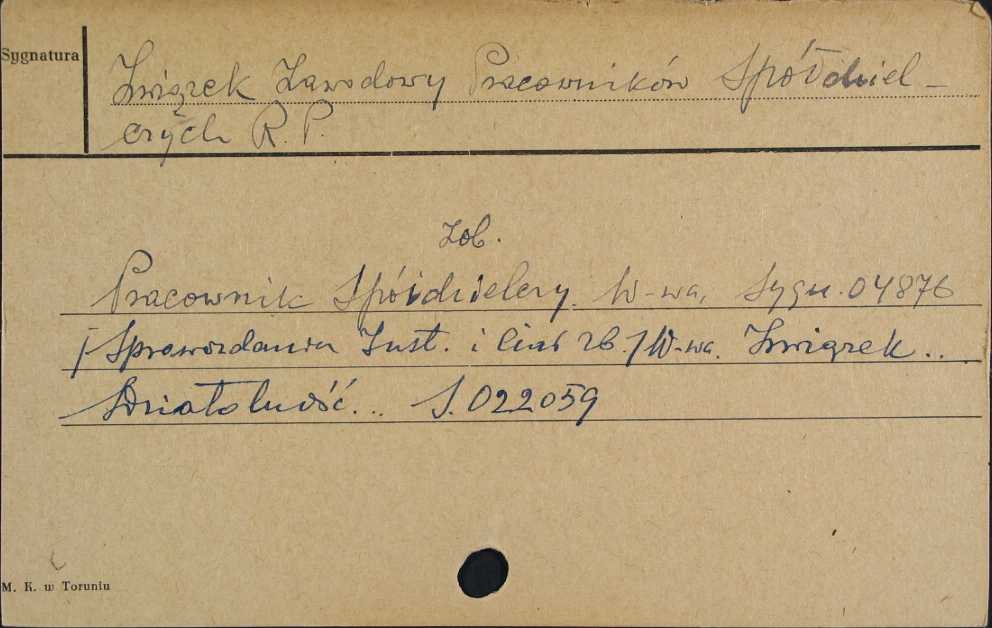 Sygnatura
Związek Zawodowy Pracowników Spółdziel-
czych R. P.
Zob.
Pracownik Spółdzielczy. W-wa, Sygn. 04876
/Sprawozdania Inst. i Ciał zb./ W-wa. Związek...
Działalność... S. 022059
M. K. w Toruniu